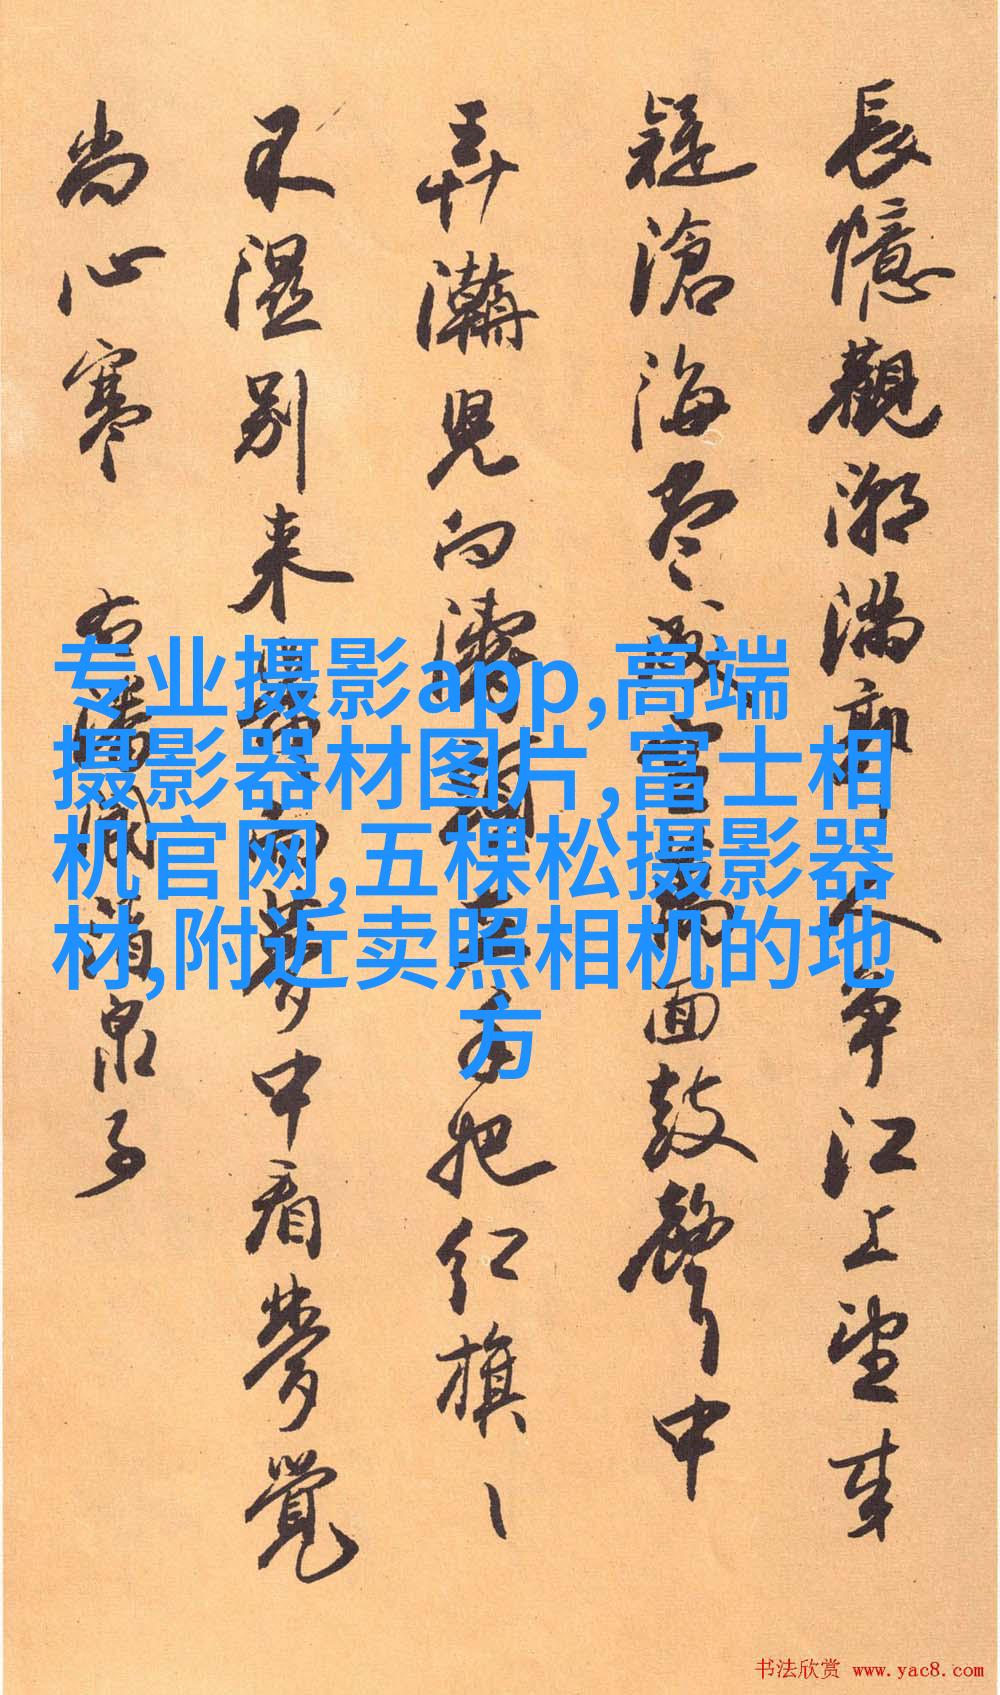 長憶觀潮滿郭人爭江上望来
疑滄海盡成空萬面鼓聲中
弄兒向濤頭立手把紅旗ヽ
不濕別来幾向夢中看夢覺
尚心寒 右潘閬酒泉子
专业摄影app,高端
摄影器材图片,富士相
机官网,五棵松摄影器
材,附近卖照相机的地
方
书法欣赏 www.yac8.com